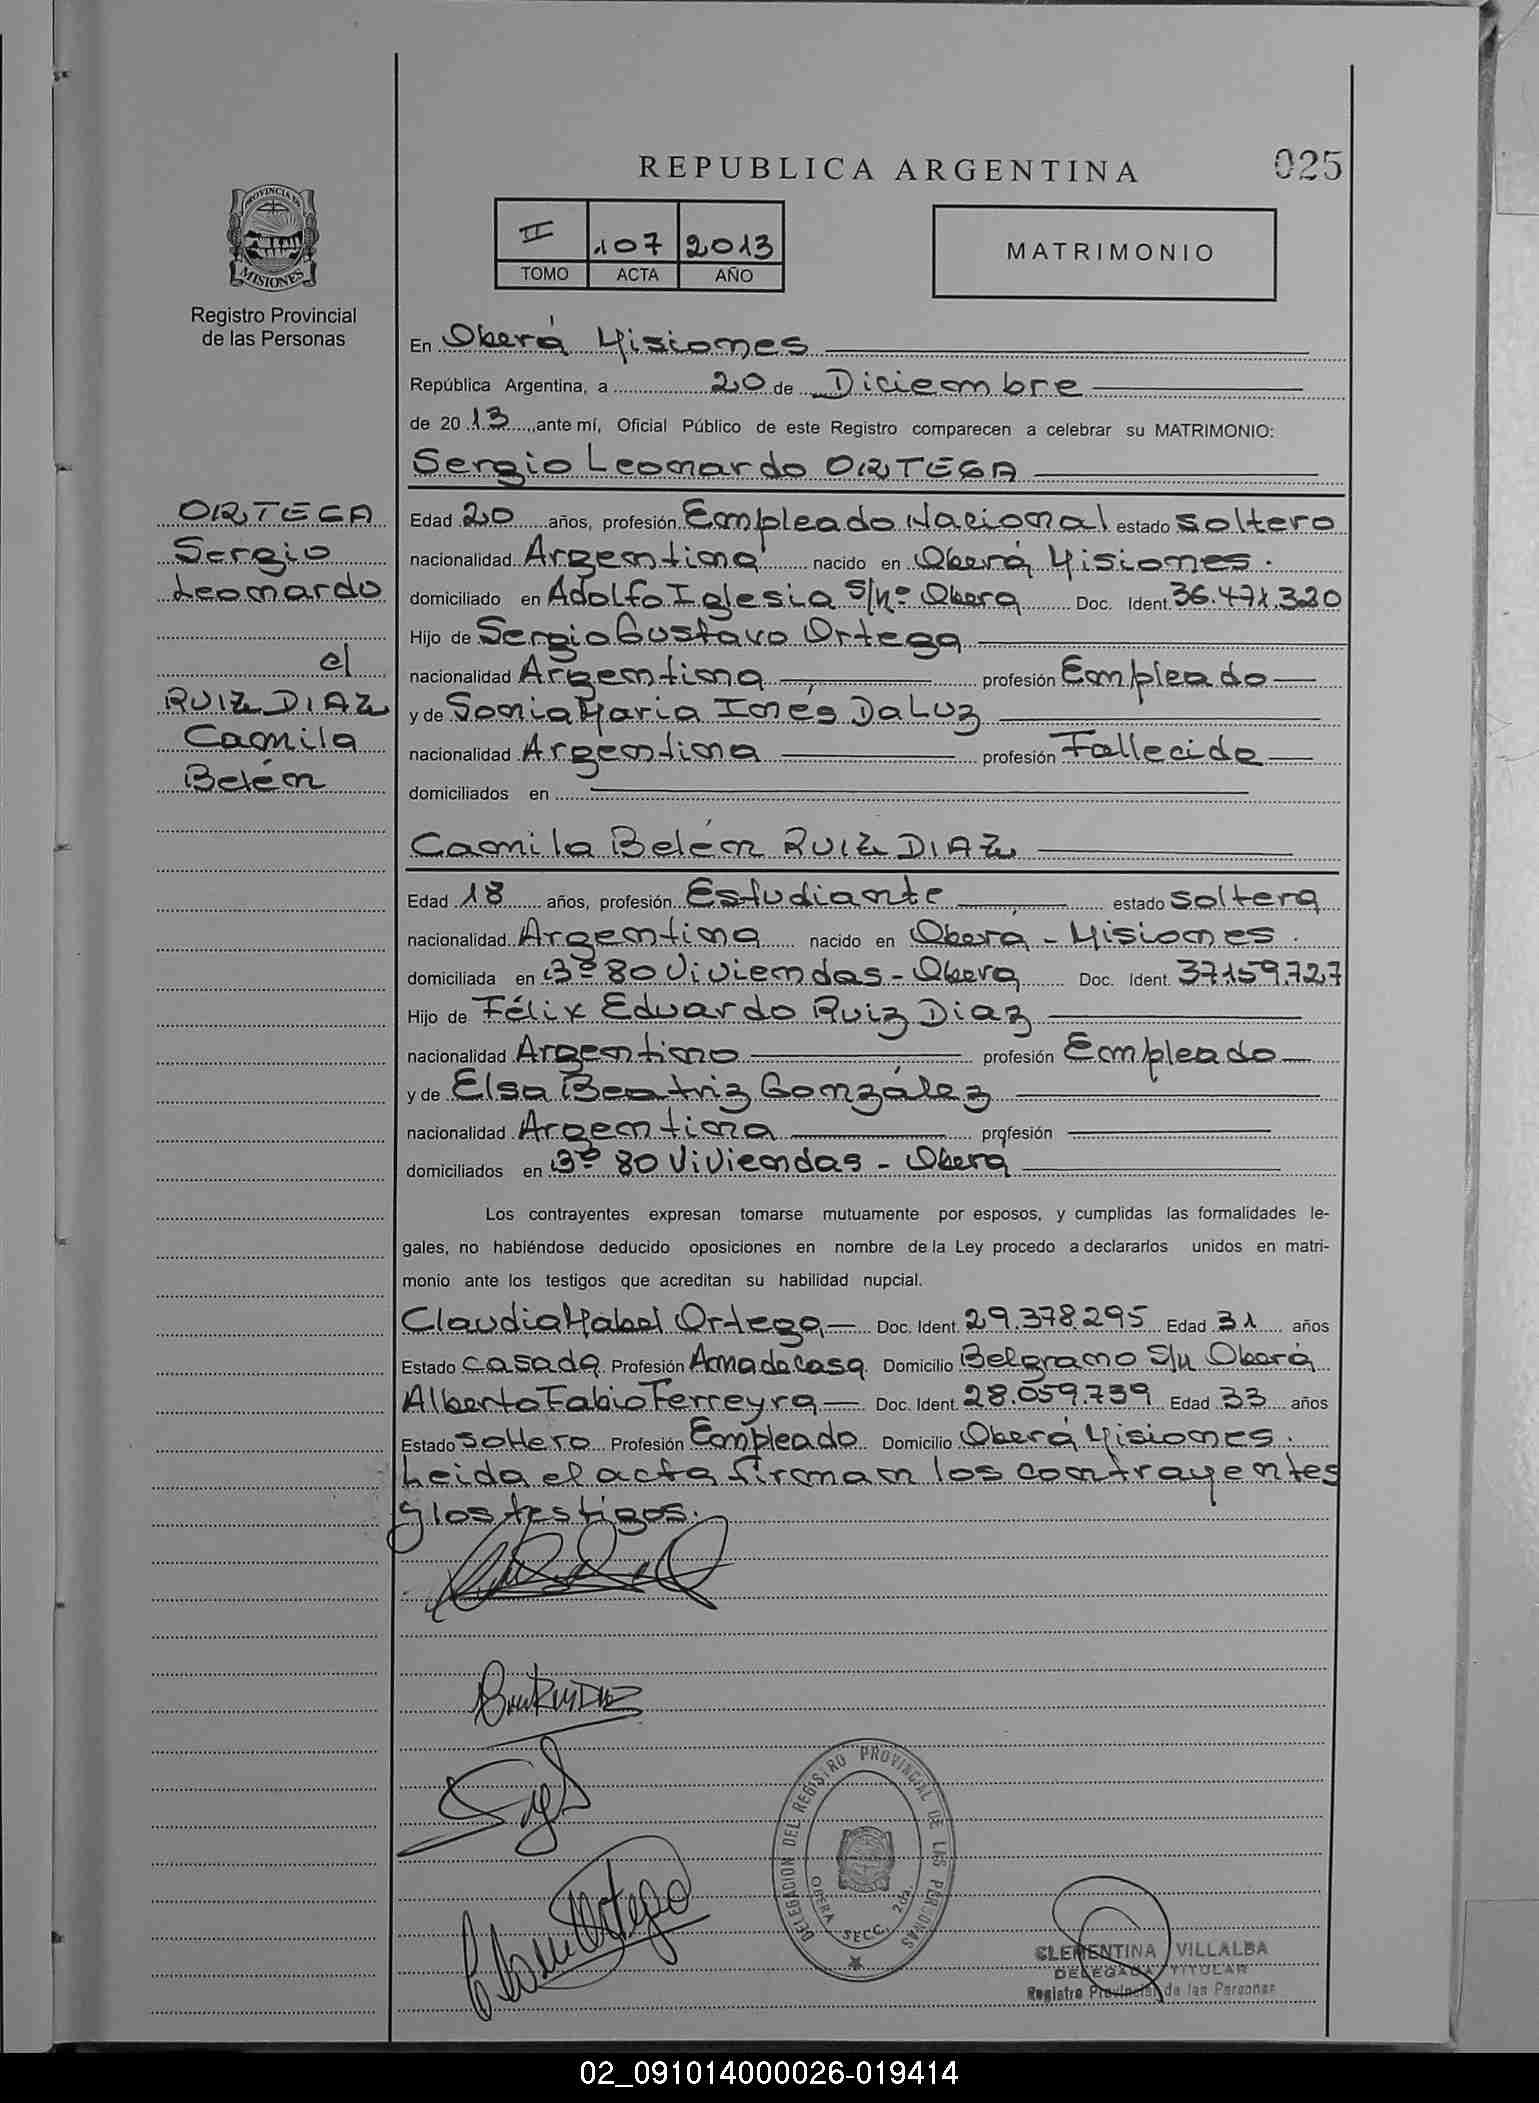 REPUBLICA ARGENTINA
025
PROVINCIA DE
MISIONES
Registro Provincial
de las Personas
II 107 2013
TOMO ACTA AÑO
MATRIMONIO
En Oberá Misiones
República Argentina, a 20 de Diciembre
de 2013, ante mí, Oficial Público de este Registro comparecen a celebrar su MATRIMONIO:
Sergio Leonardo ORTEGA
ORTEGA
Sergio
Leonardo
el
RUIZ DIAZ
Camila
Belén
Edad 20 años, profesión Empleado Nacional estado soltero
nacionalidad Argentina nacido en Oberá Misiones.
domiciliado en Adolfo Iglesia S/Nº Oberá Doc. Ident. 36.471.320
Hijo de Sergio Gustavo Ortega
nacionalidad Argentina profesión Empleado
y de Sonia Maria Inés Da Luz
nacionalidad Argentina profesión Fallecida
domiciliados en
Camila Belén RUIZ DIAZ
Edad 18 años, profesión Estudiante estado soltera
nacionalidad Argentina nacido en Oberá - Misiones.
domiciliada en Bº 80 Viviendas - Oberá Doc. Ident. 37.159.727
Hijo de Félix Eduardo Ruiz Diaz
nacionalidad Argentino profesión Empleado
y de Elsa Beatriz González
nacionalidad Argentina profesión
domiciliados en Bº 80 Viviendas - Oberá
Los contrayentes expresan tomarse mutuamente por esposos, y cumplidas las formalidades le-
gales, no habiéndose deducido oposiciones en nombre de la Ley procedo a declararlos unidos en matri-
monio ante los testigos que acreditan su habilidad nupcial.
Claudia Mabel Ortega Doc. Ident. 29.378.295 Edad 31 años
Estado casada Profesión Ama de casa Domicilio Belgrano S/N Oberá
Alberto Fabio Ferreyra Doc. Ident. 28.059.739 Edad 33 años
Estado soltero Profesión Empleado Domicilio Oberá Misiones.
Leida el acta firman los contrayentes
y los testigos.
DELEGACION DEL REGISTRO PROVINCIAL DE LAS PERSONAS
OBERA SECC. 2da.
CLEMENTINA VILLALBA
DELEGADA TITULAR
Registro Provincial de las Personas
02_091014000026-019414